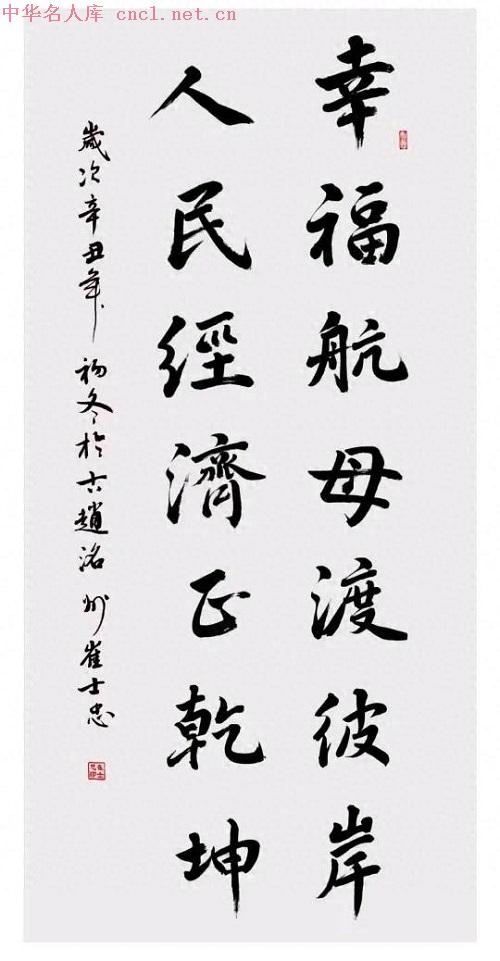 中华名人库 cnc1.net.cn
幸福航母渡彼岸
人民經濟正乾坤
歲次辛丑年初冬於古趙洺州崔士忠